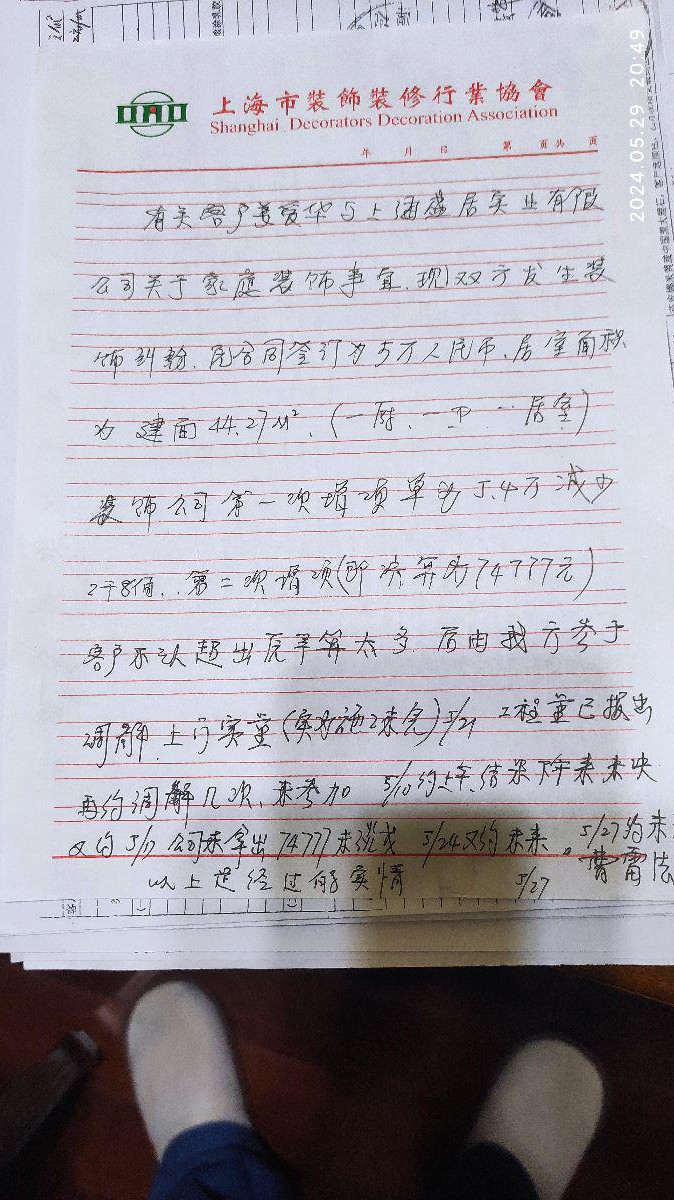 上海市装飾装修行業協會
Shanghai Decorators Decoration Association
年 月 日 第 页共 页
有关客户姜爱华与上海盛居实业有限
公司关于家庭装饰事宜.现双方发生装
饰纠纷.原合同签订为5万人民币、居室面积
为 建面44.27M².(一厨.一卫 一居室)
装饰公司第一次增项单为5.4万减少
2千8佰..第二次增项(即决算为74777元)
客户不认超出原予算太多.后由我方参于
调解.上门实量(实为施工未完)5/21 工程量已拨出
再约调解几次、未参加 5/10约上午.结果下午来未映
又约5/17 公司未拿出74777未谈成 5/24又约未来。5/27约未
以上是经过的实情 5/27 曹雷法
2024.05.29 20:49